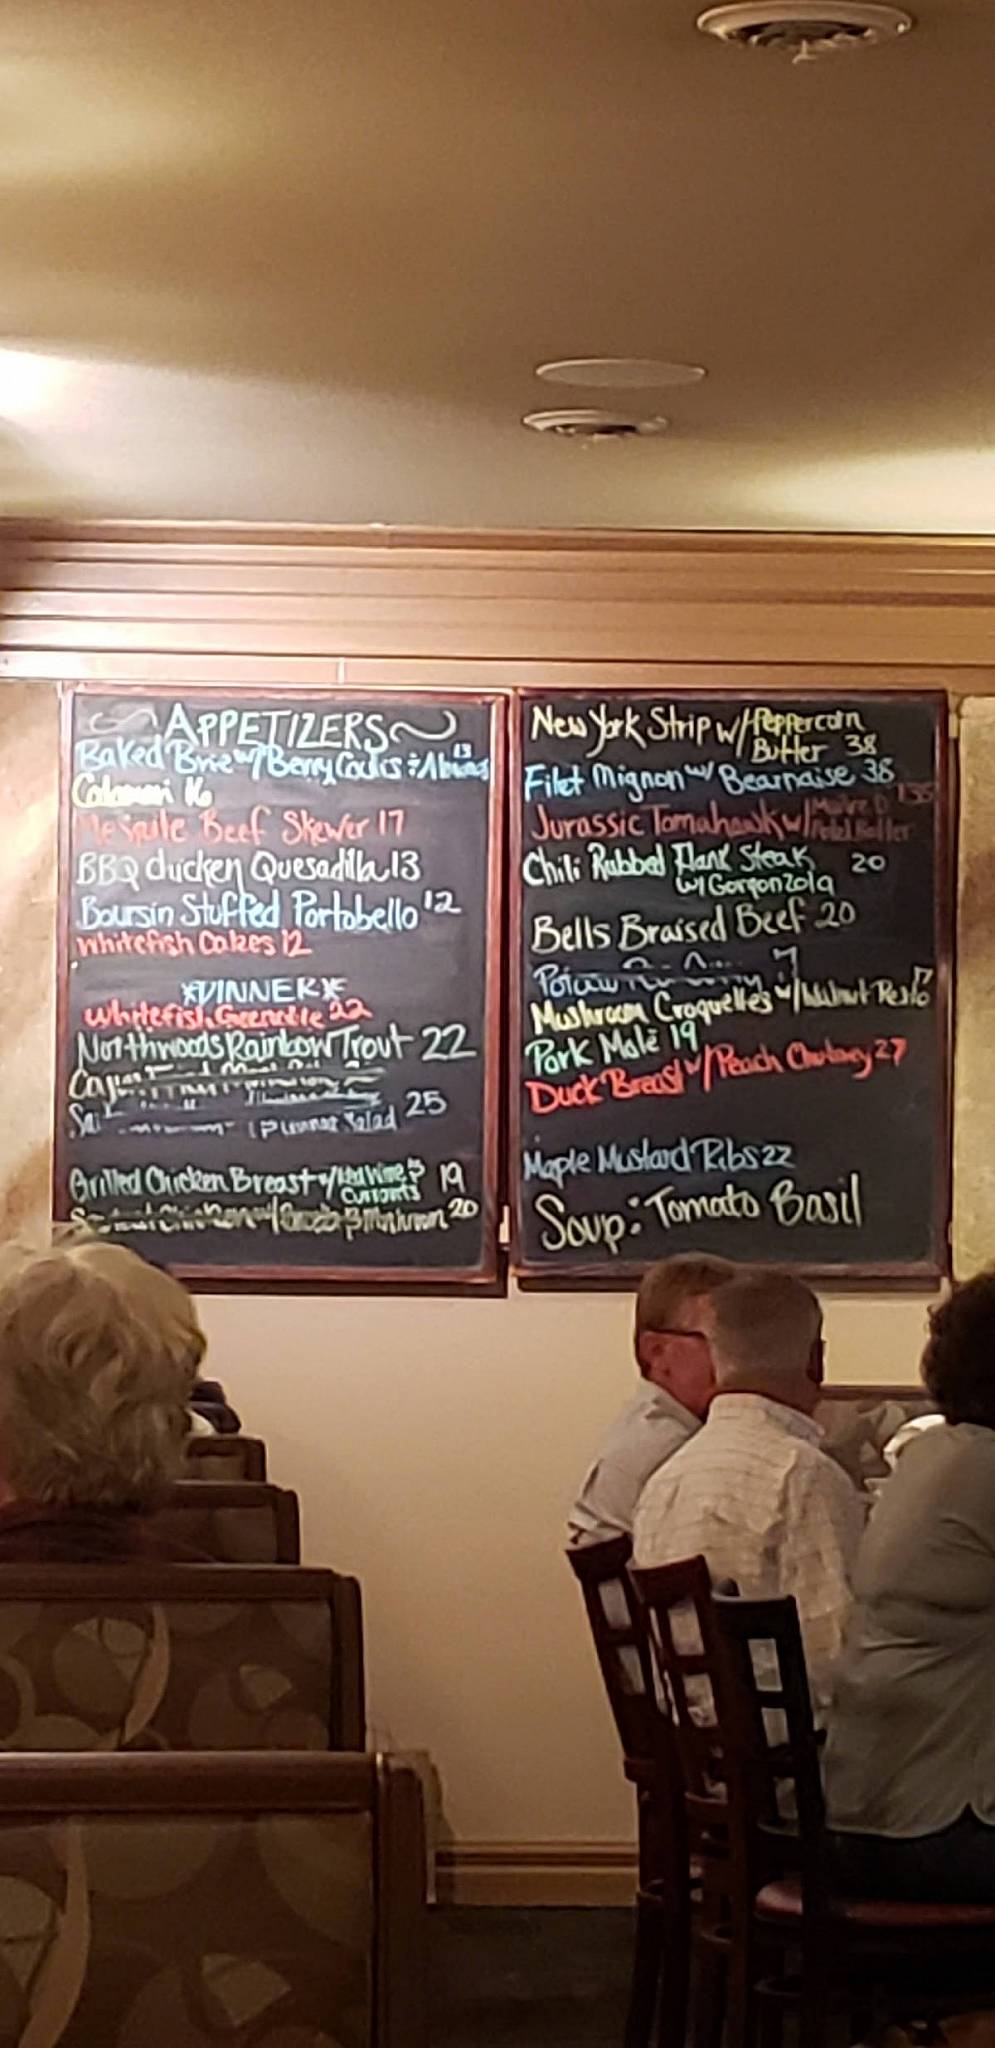 APPETIZERS
Baked Brie w/ Berry Coulis 13
Calamari 16
Mesquite Beef Skewer 17
BBQ chicken Quesadilla 13
Boursin Stuffed Portobello 12
Whitefish Cakes 12
*DINNER*
Whitefish Grenoble 22
Northwoods Rainbow Trout 22
Salad 25
Grilled Chicken Breast w/ Red Wine &
Currants 19
Mushroom 20
New York Strip w/ Peppercorn
Butter 38
Filet Mignon w/ Bearnaise 38
Jurassic Tomahawk w/ Maitre D
Hotel Butter 135
Chili Rubbed Flank Steak 20
w/ Gorgonzola
Bells Braised Beef 20
Mushroom Croquettes w/ Walnut Pesto 17
Pork Molé 19
Duck Breast w/ Peach Chutney 27
Maple Mustard Ribs 22
Soup: Tomato Basil